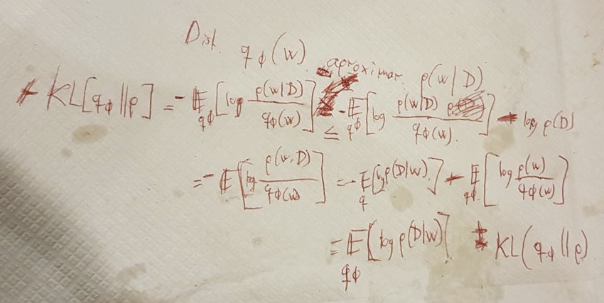 Dist. q φ (w)
aproximar p(w|D)
KL[qφ||p] = - E qφ [log p(w|D) / qφ(w)] ≤ - E qφ [log p(w|D) / qφ(w)] - log p(D)
= - E [log p(w,D) / qφ(w)] = - E q [log p(D|w)] - E qφ [log p(w) / qφ(w)]
= E qφ [log p(D|w)] KL(qφ||p)